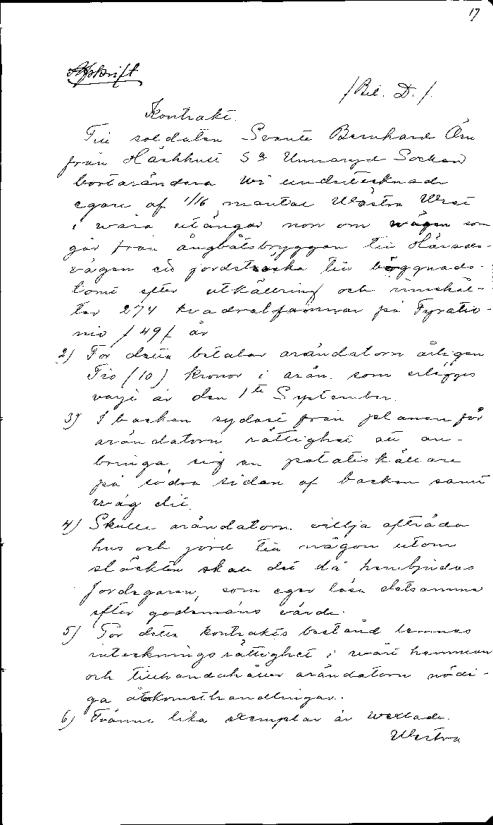 17
Afskrift
/Bil. D./.
Kontrakt.
Till soldaten Svante Bernhard Örn
från Härkhult S⁰ Unnaryd Socken
bortarändera wi undertecknade
egare af 1/16 mantal Westra
i wåra utängar norr om wägen som
går från ångbåtsbryggan till Härads-
vägen en jordsträcka till byggnads-
tomt efter utstakning och
274 kvadratfamnar på Fyratio-
nio /49/ år
2) För detta betalar arändatorn årligen
Tio (10) kronor i arän. som erlägges
varje år den 1ste September.
3) I backen sydost från planen får
arändatorn rättighet att an-
bringa sig en potatiskällare
på södra sidan af backen samt
wäg dit.
4) Skulle arändatorn villja afträda
hus och jord till någon utom
släkten skall det då hembjudas
jordegaren, som eger lösa detsamma
efter godemäns värde.
5) För detta kontrakts bestånd lemnas
inteckningsrättighet i wårt hemman
och tillhandahåller arändatorn nödi-
ga åtkomsthandlingar.
6) Tvänne lika exemplar är wexlade.
Westra